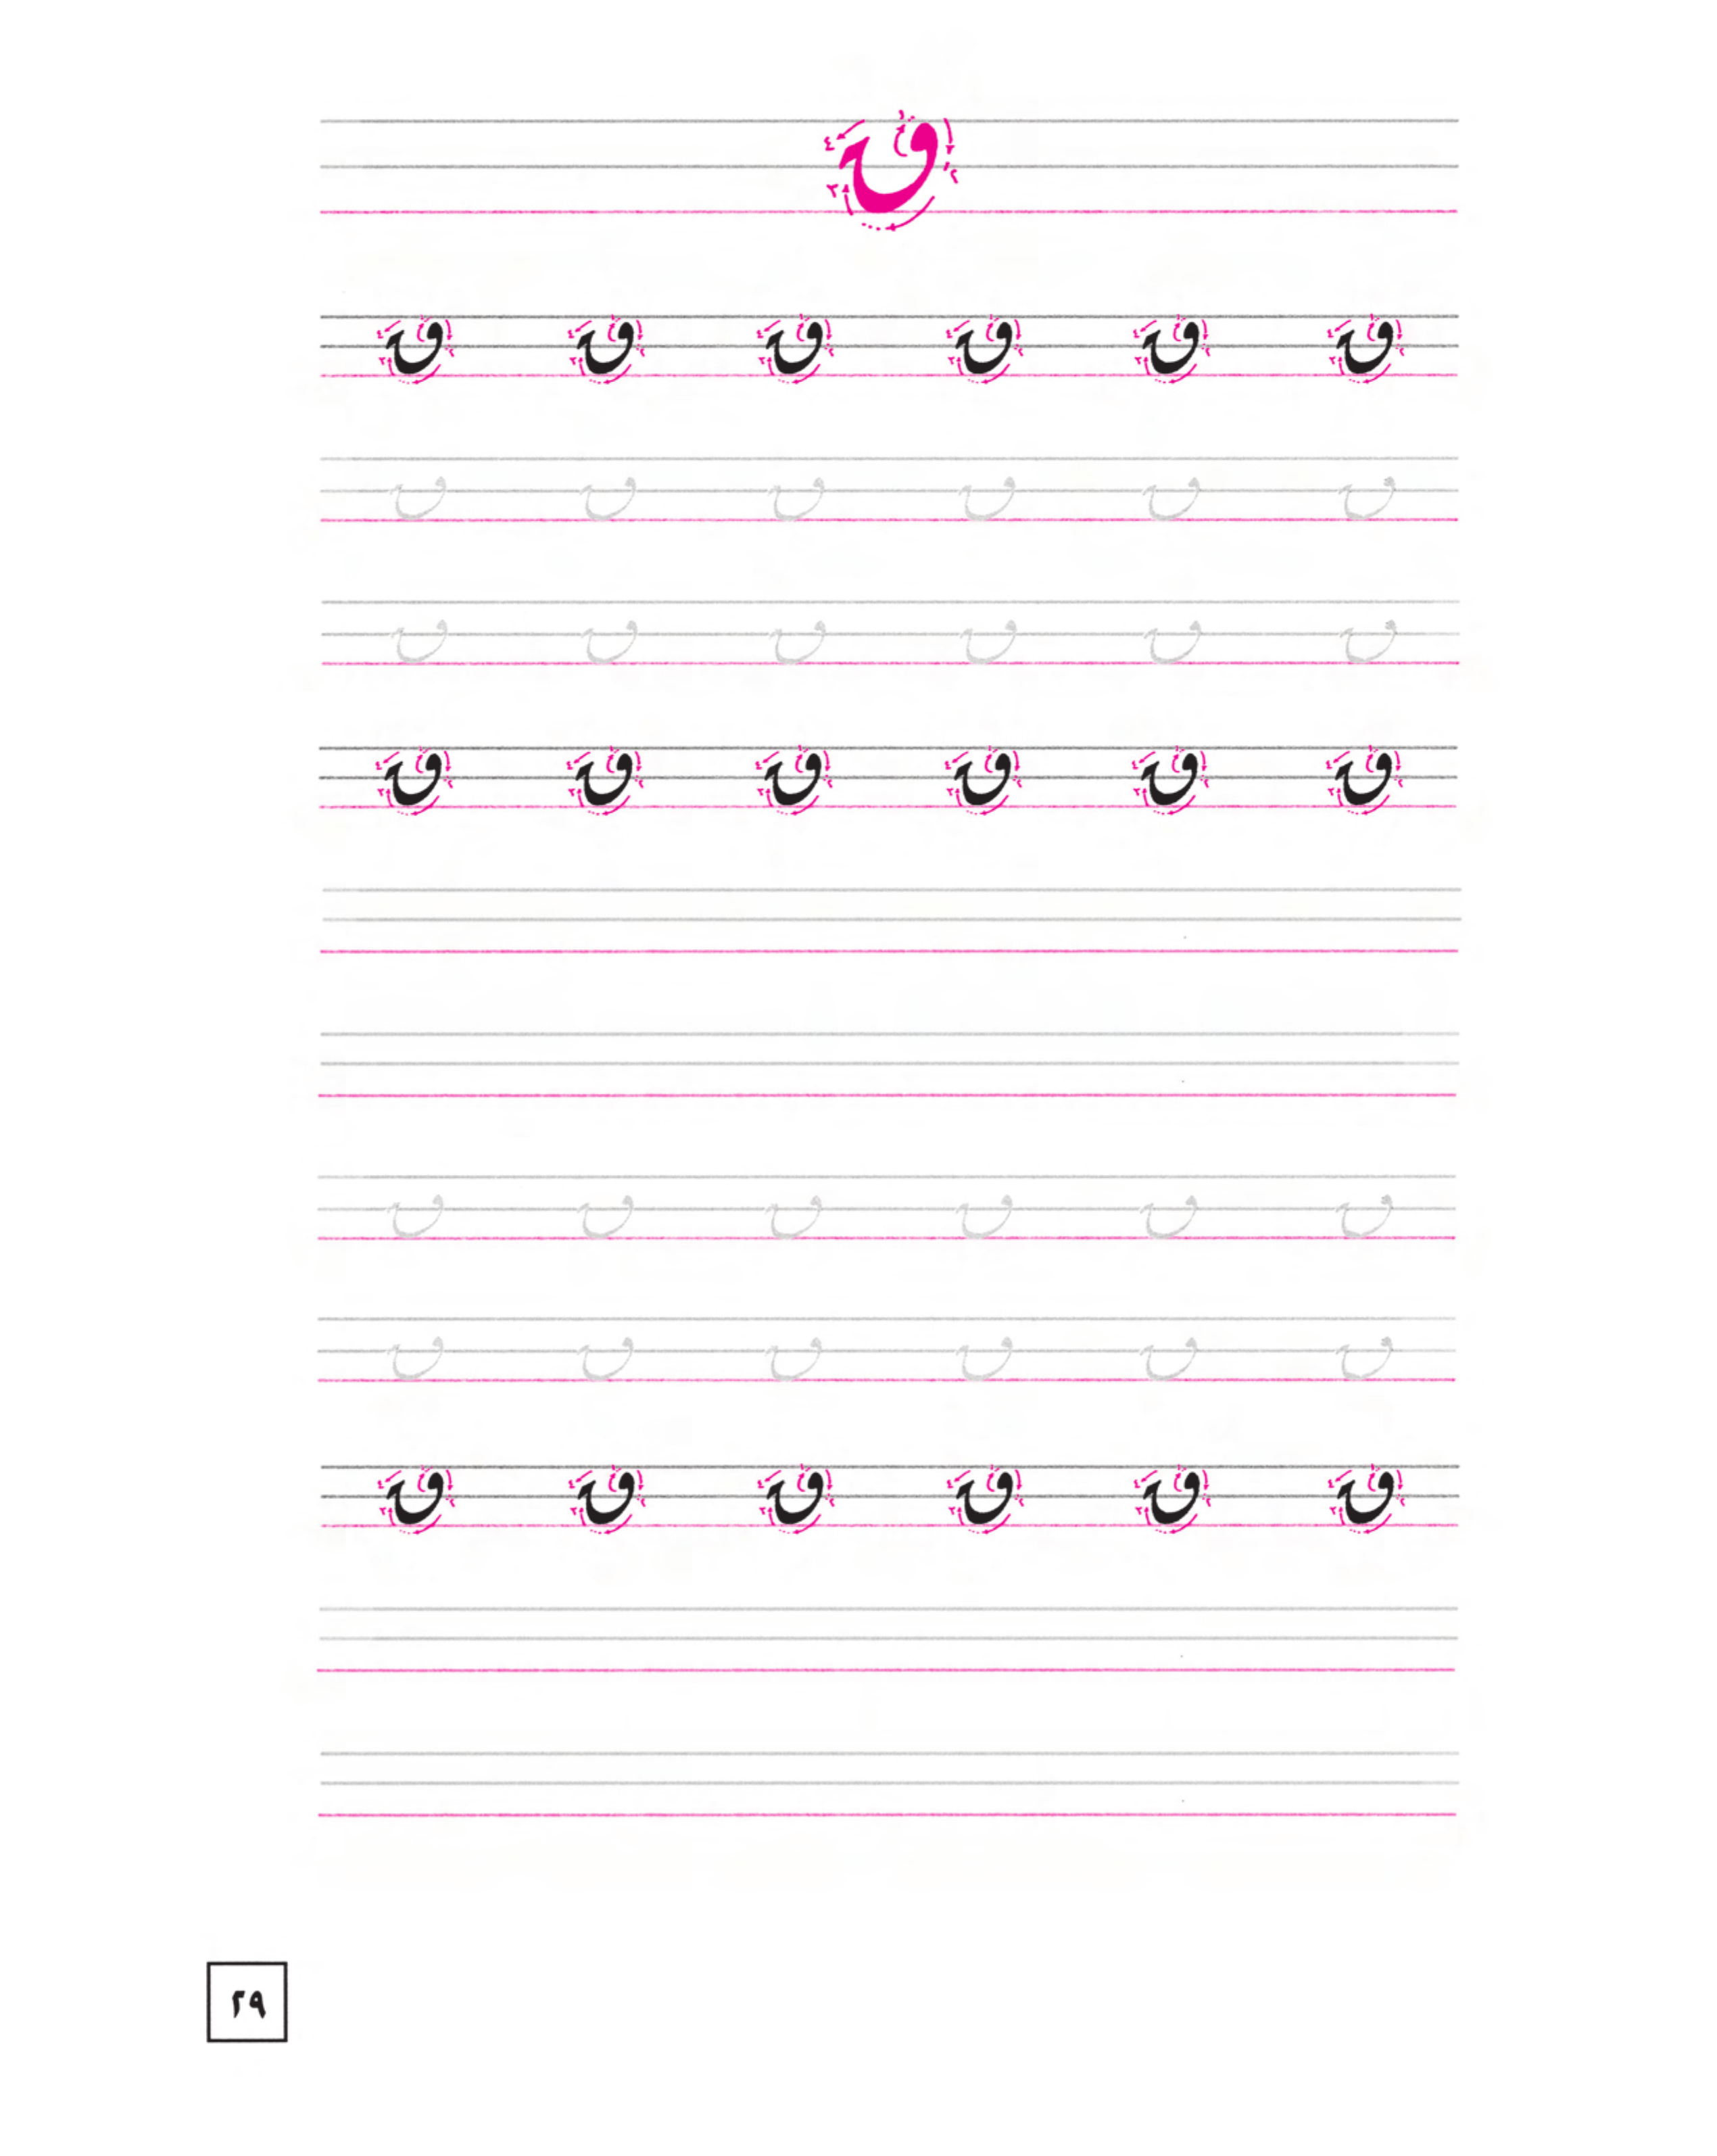 ق
ق ق ق ق ق ق
ق ق ق ق ق ق
ق ق ق ق ق ق
ق ق ق ق ق ق
ق ق ق ق ق ق
ق ق ق ق ق ق
ق ق ق ق ق ق
٢٩